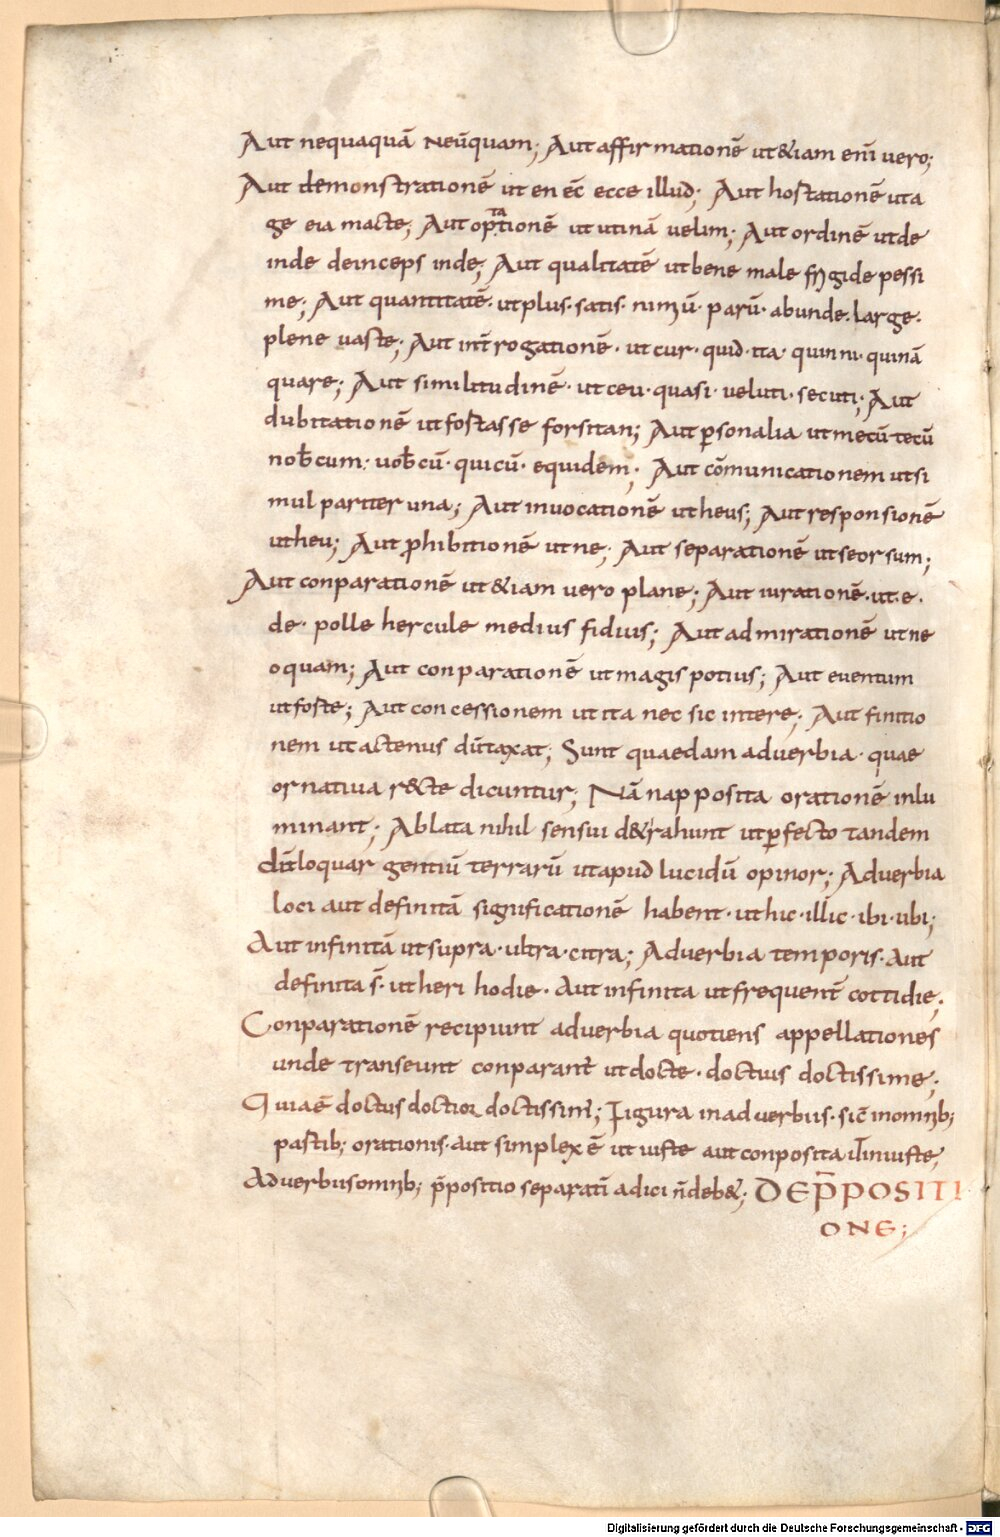 Aut nequaquā neūquam; Aut affirmationē ut &iam enī vero;
Aut demonstrationē ut en ec̄ ecce illud; Aut hostationē ut a
ge eia macte; Aut optationē ut utinā velim; Aut ordinē ut de
inde deinceps inde; Aut qualitatē ut bene male frigide pessi
me; Aut quantitatē· ut plus· satis· nimiū· parū· abunde· large·
plene vaste; Aut int̄rogationē· ut cur· quid· ita· quinni· quinā
quare; Aut similitudinē· ut ceu· quasi· veluti· secuti; Aut
dubitationē ut fostasse forsitan; Aut p̄sonalia ut mecū tecū
nob̄cum· vob̄cū· quicū· equidem; Aut cōmunicationem ut si
mul pariter una; Aut invocationē ut heus; Aut responsionē
ut heu; Aut p̄hibitionē ut ne; Aut separationē ut seorsum;
Aut conparationē ut &iam vero plane; Aut iurationē· ut· e·
de· polle hercule medius fidius; Aut admirationē ut ne
o quam; Aut conparationē ut magis potius; Aut eventum
ut foste; Aut concessionem ut ita nec sic intere; Aut finitio
nem ut actenus dūtaxat; Sunt quaedam adverbia· quae
ornativa r&cte dicuntur; Nā napposita orationē inlu
minant; Ablata nihil sensui d&rahunt ut p̄fecto tandem
dūtloquar gentiū terrarū ut apud lucidū opinor; Adverbia
loci aut definitā significationē habent· ut hic· illic· ibi· ubi;
Aut infinitā ut supra· ultra· citra; Adverbia temporis· Aut
definita s̄· ut heri hodie· Aut infinita ut frequent̄ cottidie;
Conparationē recipiunt adverbia quotiens appellationes
unde transeunt conparant̄ ut docte· doctius doctissime;
Quia ē doctus doctior doctissim̄; Figura in adverbiis· sic̄ in omnib;
pastib; orationis· aut simplex ē ut iuste aut conposita ut iniuste;
Adverbiis omnib; p̄positio separatī adici n̄ deb&; DE P̄POSITI
ONE;
Digitalisierung gefördert durch die Deutsche Forschungsgemeinschaft - DFG